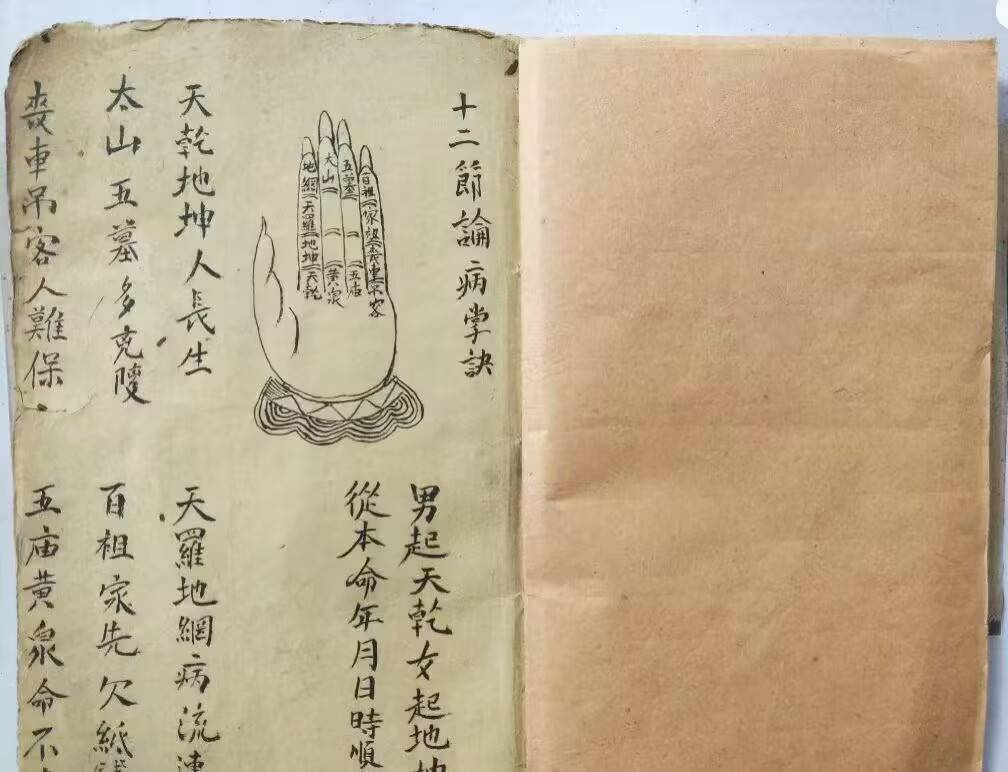 十二節論病掌訣
百祖
家祖
喪車
吊客
五墓
五庙
太山
黄泉
地網
天羅
地坤
天乾
男起天乾女起地坤
從本命年月日時順
天乾地坤人長生
天羅地網病流連
太山五墓多克陵
百祖家先欠紙錢
喪車吊客人難保
五庙黄泉命不